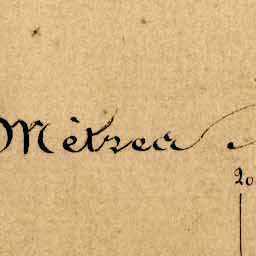 Mètres
20